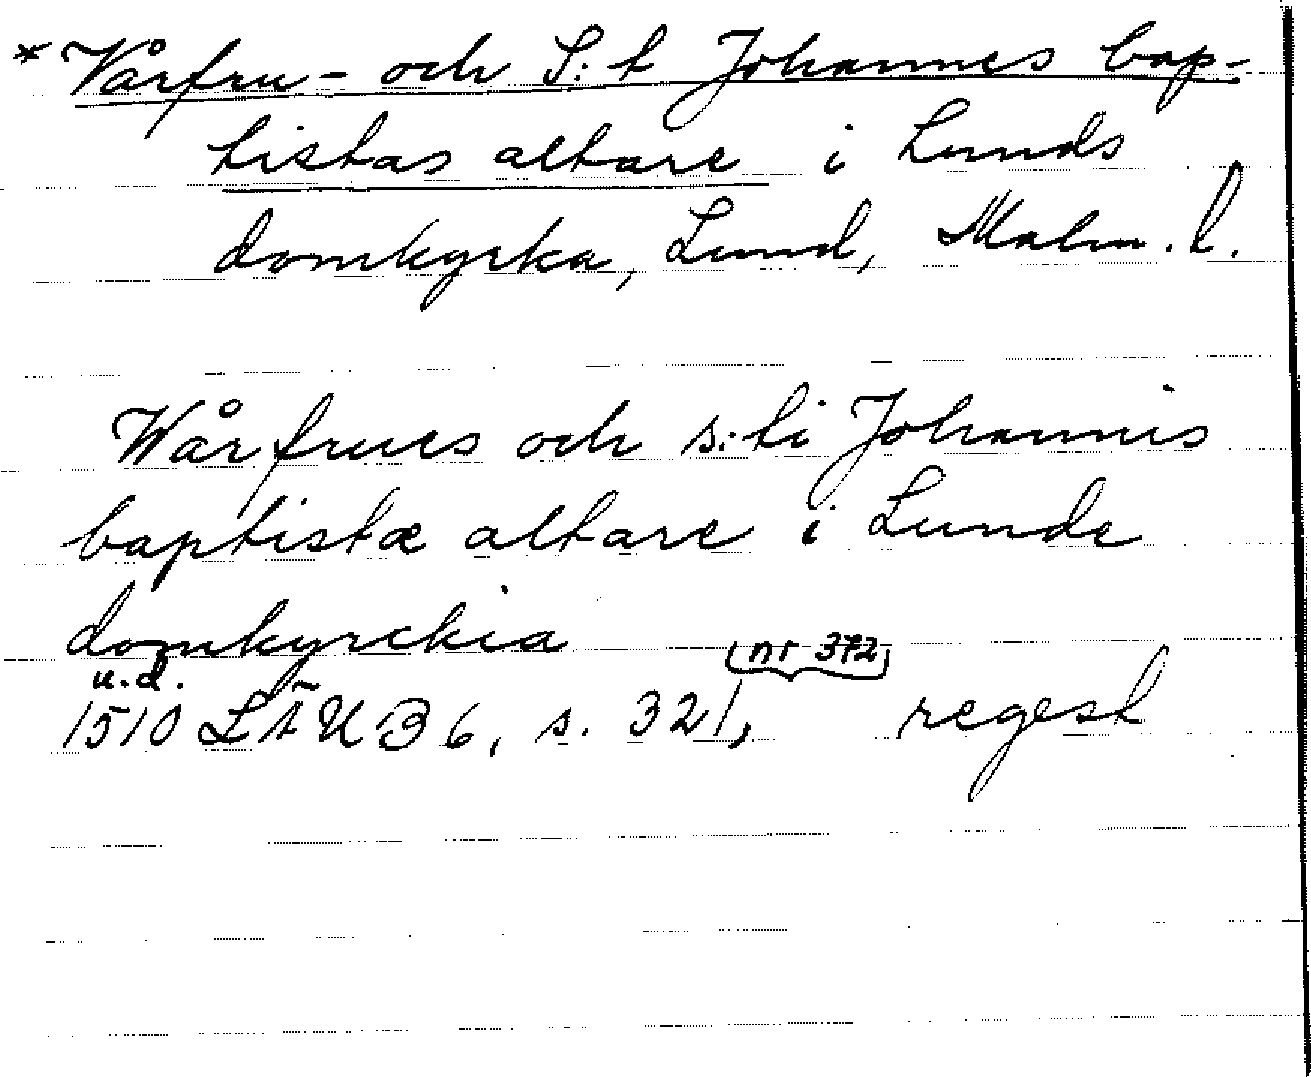 * Vårfru- och S:t Johannes bap-
tistas altare i Lunds
domkyrka, Lund, Malm. l.
Wår frues och s:ti Johannis
baptistæ altare i Lunde
domkyrckia
u.d. nr 372
1510 LÄUB 6, s. 321, regest